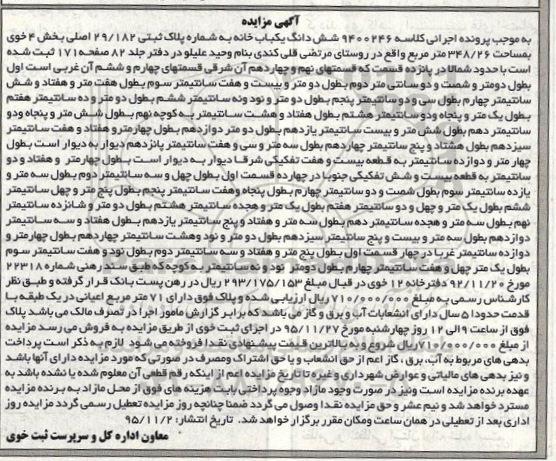 آگهی مزایده
به موجب پرونده اجرائی کلاسه ۹۴۰۰۲۴۶ شش دانگ یکباب خانه به شماره پلاک ثبتی ۲۹/۱۸۲ اصلی بخش ۴ خوی
بمساحت ۳۴۸/۲۶ متر مربع واقع در روستای مرتضی قلی کندی بنام وحید علیلو در دفتر جلد ۸۲ صفحه ۱۷۱ ثبت شده
است با حدود شمالا در پانزده قسمت که قسمتهای نهم و چهاردهم آن شرقی قسمتهای چهارم و ششم آن غربی است اول
بطول دومتر و شصت و دو سانتی متر دوم بطول دو متر و بیست و هفت سانتیمتر سوم بطول هفت متر و هفتاد و شش
سانتیمتر چهارم بطول سی و دو سانتیمتر پنجم بطول دو متر و نود ونه سانتیمتر ششم بطول دو متر و ده سانتیمتر هفتم
بطول یک متر و پنجاه ودو سانتیمتر هشتم بطول هفتاد و هشت سانتیمتر به کوچه نهم بطول شش متر و پنجاه ودو
سانتیمتر دهم بطول شش متر و بیست سانتیمتر یازدهم بطول دو متر دوازدهم بطول چهارمتر و هفتاد و هفت سانتیمتر
سیزدهم بطول هشتاد و پنج سانتیمتر چهاردهم بطول سه متر و سی و هفت سانتیمتر پانزدهم دیوار به دیوار است بطول
چهار متر و دوازده سانتیمتر به قطعه بیست و هفت تفکیکی شرقا دیوار به دیوار است بطول چهارمتر و هفتاد و دو
سانتیمتر به قطعه بیست و شش تفکیکی جنوبا در چهارده قسمت اول بطول چهل و سه سانتیمتر دوم بطول سه متر و
یازده سانتیمتر سوم بطول شصت و دو سانتیمتر چهارم بطول پنجاه وهفت سانتیمتر پنجم بطول پنج متر و چهل سانتیمتر
ششم بطول یک متر و چهل و دو سانتیمتر هفتم بطول یک متر و هجده سانتیمتر هشتم بطول دو متر و شانزده سانتیمتر
نهم بطول سه متر و هجده سانتیمتر دهم بطول سه متر و هفتاد و پنج سانتیمتر یازدهم بطول هفتاد و سه سانتیمتر
دوازدهم بطول سه متر و بیست و پنج سانتیمتر سیزدهم بطول دو متر و نود وهشت سانتیمتر چهاردهم بطول چهارمتر و
دوازده سانتیمتر غربا در چهار قسمت اول بطول پنج متر و هفتاد و سه سانتیمتر دوم بطول نود و هفت سانتیمتر سوم
بطول یک متر چهل و هفت سانتیمتر چهارم بطول دومتر نود و نه سانتیمتر به کوچه که طبق سند رهنی شماره ۲۲۳۱۸
مورخ ۹۲/۱۱/۲۰ دفترخانه ۱۲ خوی در قبال مبلغ ۲۹۳/۱۷۵/۱۵۳ ریال در رهن پست بانک قرار گرفته و طبق نظر
کارشناس رسمی به مبلغ ۷۱۰/۰۰۰/۰۰۰ ریال ارزیابی شده و پلاک فوق دارای ۷۱ متر مربع اعیانی در یک طبقه با
قدمت حدودا ۵ سال دارای انشعابات آب و برق و گاز می باشد که برابر گزارش مامور اجرا در تصرف مالک می باشد پلاک
فوق از ساعت ۹ الی ۱۲ روز چهارشنبه مورخ ۹۵/۱۱/۲۷ در اجرای ثبت خوی از طریق مزایده به فروش می رسد مزایده
از مبلغ ۷۱۰/۰۰۰/۰۰۰ ریال شروع و به بالاترین قیمت پیشنهادی نقدا فروخته می شود لازم به ذکر است پرداخت
بدهی های مربوط به آب، برق ، گاز اعم از حق انشعاب و یا حق اشتراک ومصرف در صورتی که مورد مزایده دارای آنها باشد
و نیز بدهی های مالیاتی و عوارض شهرداری و غیره تا تاریخ مزایده اعم از اینکه رقم قطعی آن معلوم شده یا نشده باشد به
عهده برنده مزایده است ونیز در صورت وجود مازاد وجوه پرداختی بابت هزینه های فوق از محل مازاد به برنده مزایده
مسترد خواهد شد و نیم عشر و حق مزایده نقدا وصول می گردد ضمنا چنانچه روز مزایده تعطیل رسمی گردد مزایده روز
اداری بعد از تعطیلی در همان ساعت ومکان مقرر برگزار خواهد شد. تاریخ انتشار: ۹۵/۱۱/۲
معاون اداره کل و سرپرست ثبت خوی